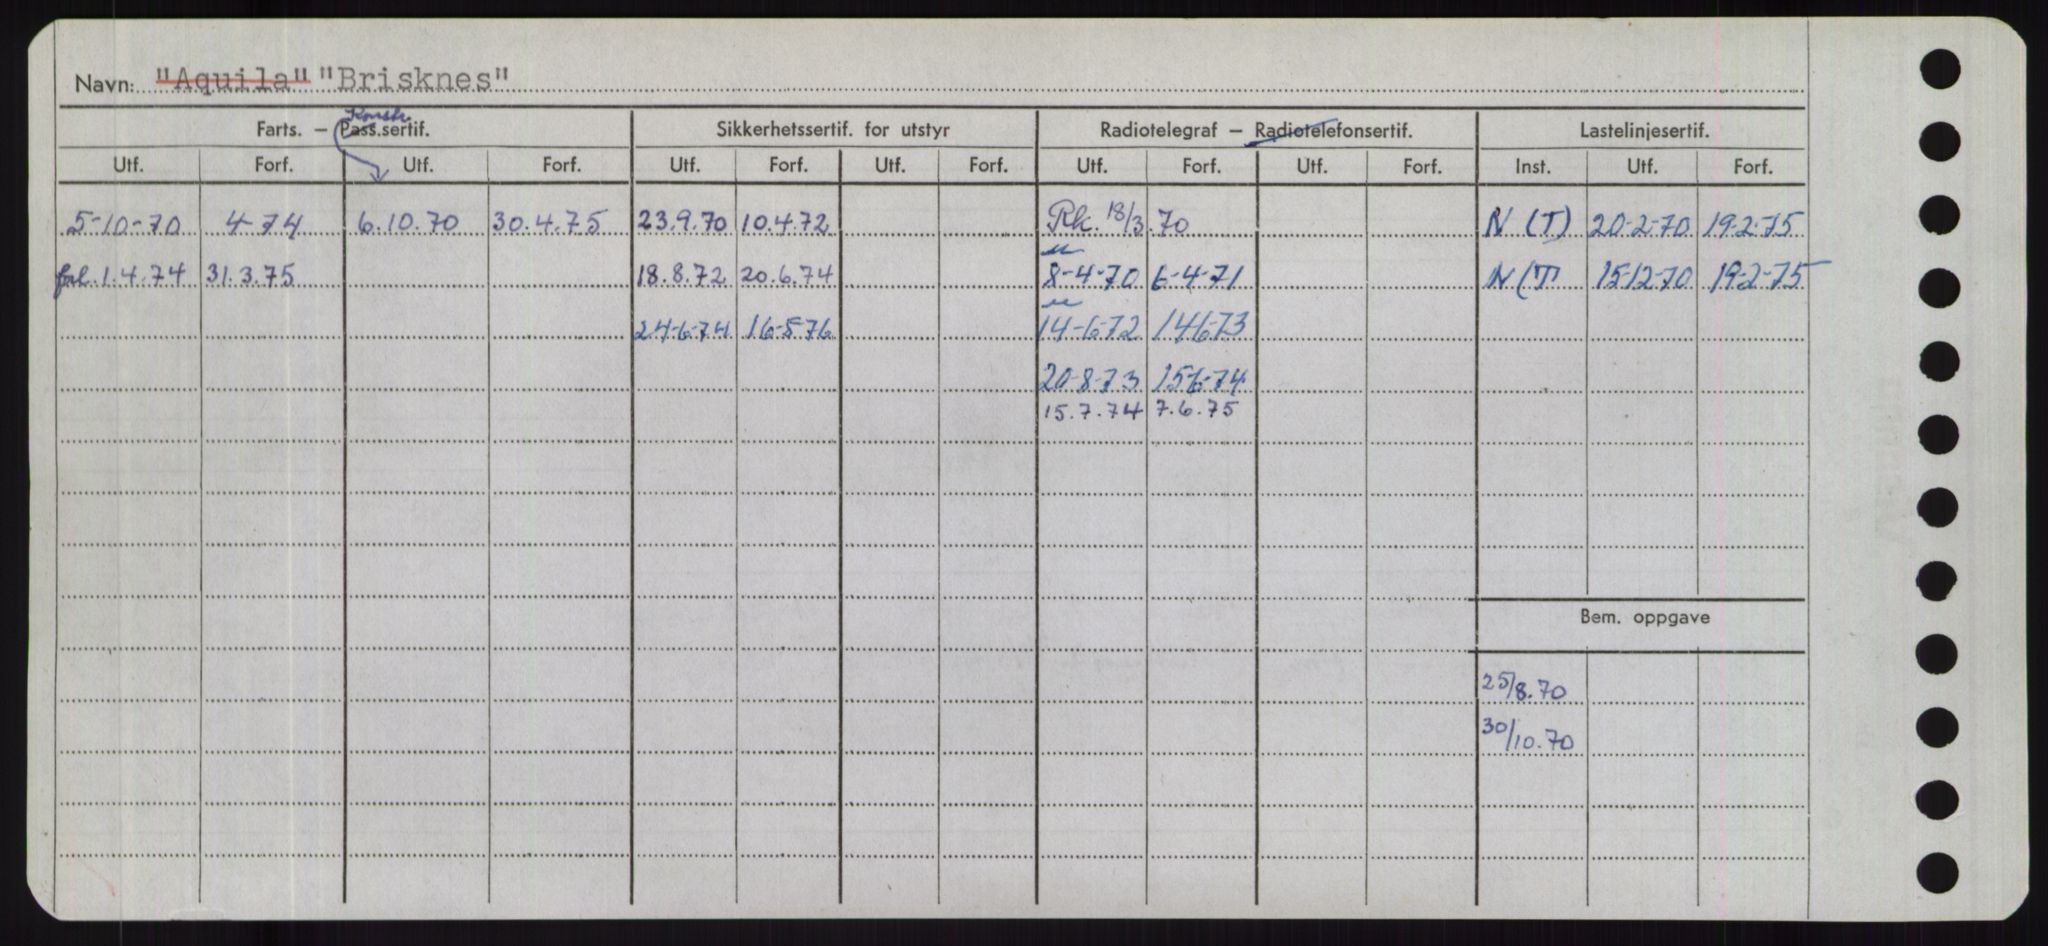 Navn: "Aquila" "Brisknes"
Konstr.
Farts. — Pass.sertif. Sikkerhetssertif. for utstyr Radiotelegraf — Radiotelefonsertif. Lastelinjesertif.
Utf. Forf. Utf. Forf. Utf. Forf. Utf. Forf. Utf. Forf. Utf. Forf. Inst. Utf. Forf.
5-10-70 4-74 6.10.70 30.4.75 23.9.70 10.4.72 Rk. 18/3.70 N (T) 20-2-70 19-2-75
frl. 1.4.74 31.3.75 18.8.72 20.6.74 8-4-70 6-4-71 N (T 15-12-70 19-2-75
24-6-74 16-5-76 14-6-72 14-6-73
20-8-73 15-6-74
15.7.74 7.6.75
Bem. oppgave
25/8.70
30/10.70